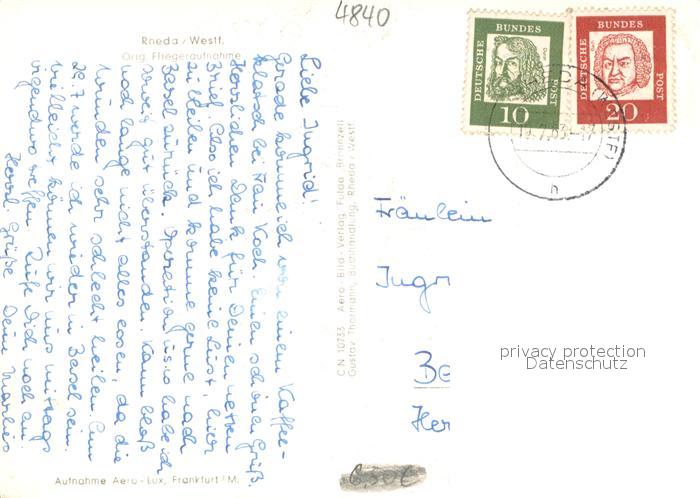 4840
Rheda / Westf.
Orig. Fliegeraufnahme
Liebe Ingrid!
Gerade komme ich von einem Kaffee-
klatsch bei Frau Koch. Einen schönen Gruß.
Herzlichen Dank für Deinen netten
Brief. Also ich habe keine Lust, hier
zu bleiben und komme gerne nach
Basel zurück. Operation usw. habe ich
soweit gut überstanden. Kann bloß
noch lange nicht alles essen, da die
Wunden sehr schlecht heilen. Am
29.7 werde ich wieder in Basel sein.
Vielleicht können wir uns mittags
irgendwo treffen. Rufe Dich noch an.
Herzl. Grüße Deine Marlies
Aufnahme Aero-Lux, Frankfurt/M.
C.N. 10733 Aero-Bild-Verlag, Fulda, Bronnzell
Gustav Thormann, Buchhandlung, Rheda-Westf.
DEUTSCHE BUNDES POST
10
DEUTSCHE BUNDES POST
20
Fräulein
Ingr
Ba
Her
privacy protection
Datenschutz
6,50€